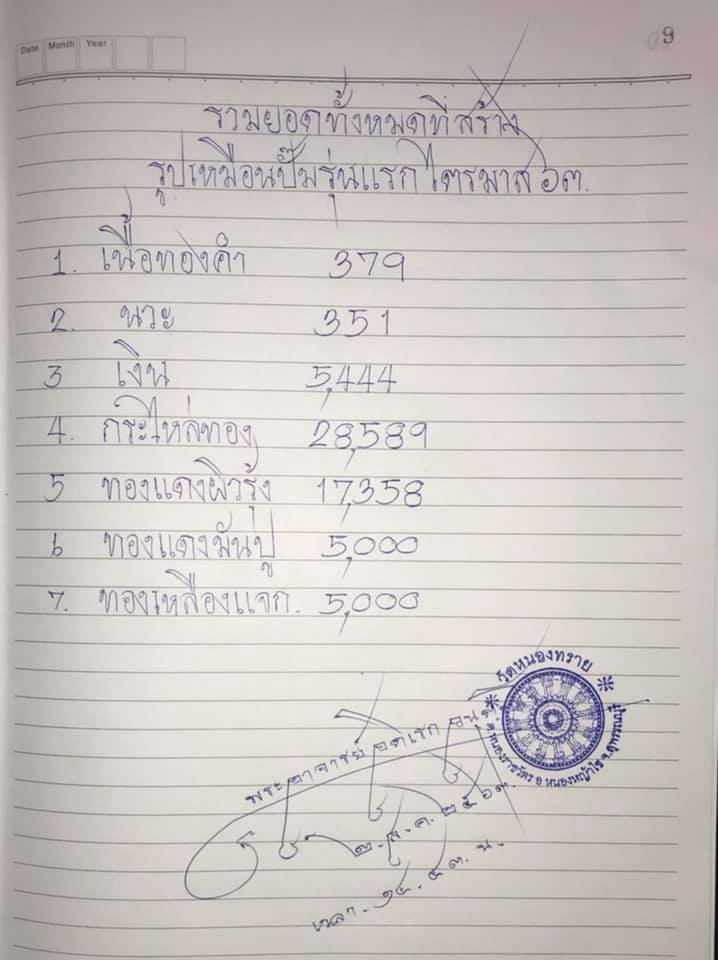 Date Month Year
9
รวมยอดทั้งหมดที่สร้าง
รูปเหมือนปั๊มรุ่นแรก ไตรมาส ๖๓.
1. เนื้อทองคำ 379
2. นวะ 351
3 เงิน 5,444
4. กระไหล่ทอง 28,589
5 ทองแดงผิวรุ้ง 17,358
6 ทองแดงมันปู 5,000
7. ทองเหลืองแจก. 5,000
วัดหนองทราย
ต.หนองราชวัตร อ.หนองหญ้าไซ จ.สุพรรณบุรี
พระอาจารย์
๒. ส. ค. ๒๕๖๓.
เวลา. ๑๔. ๕๓. น.